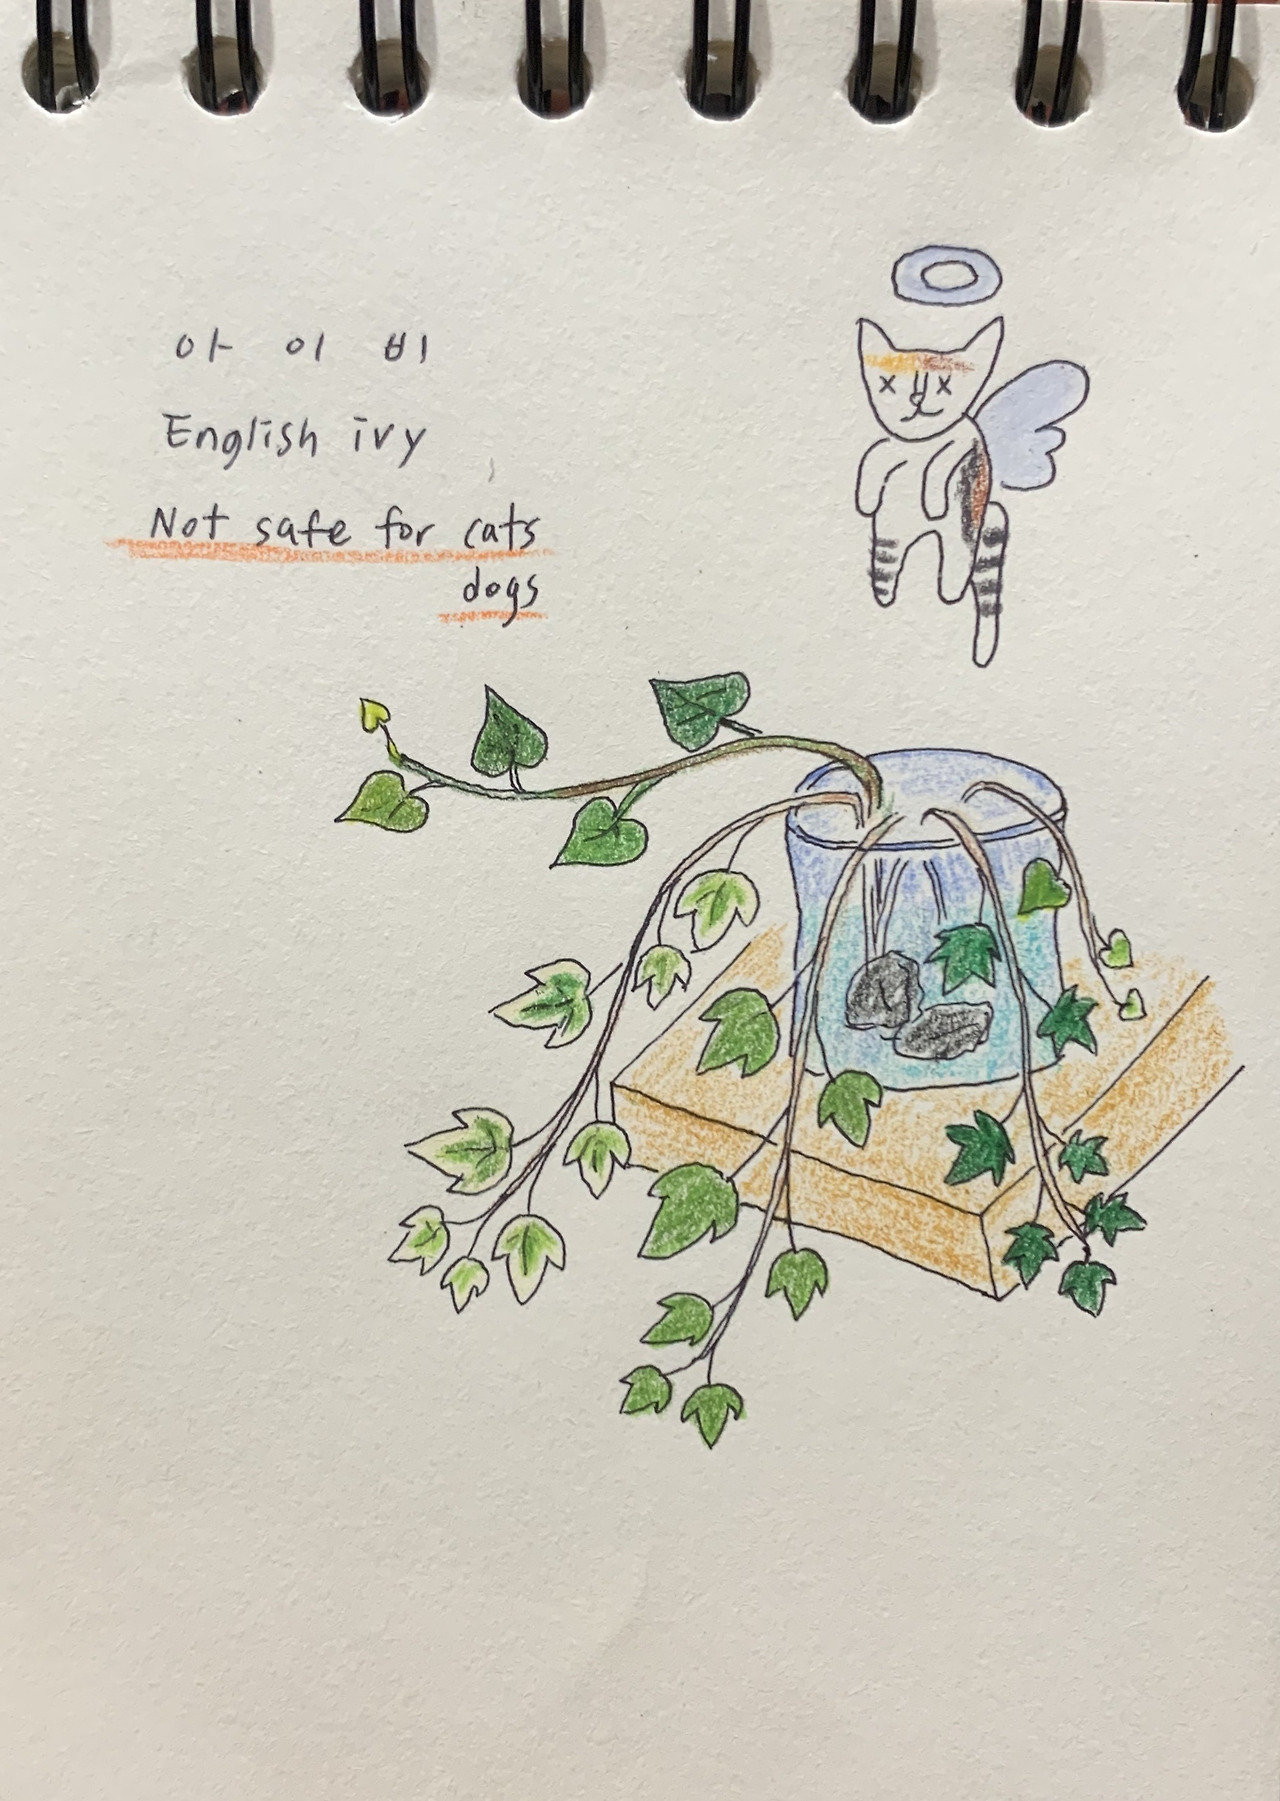 아이비
English ivy
Not safe for cats
dogs